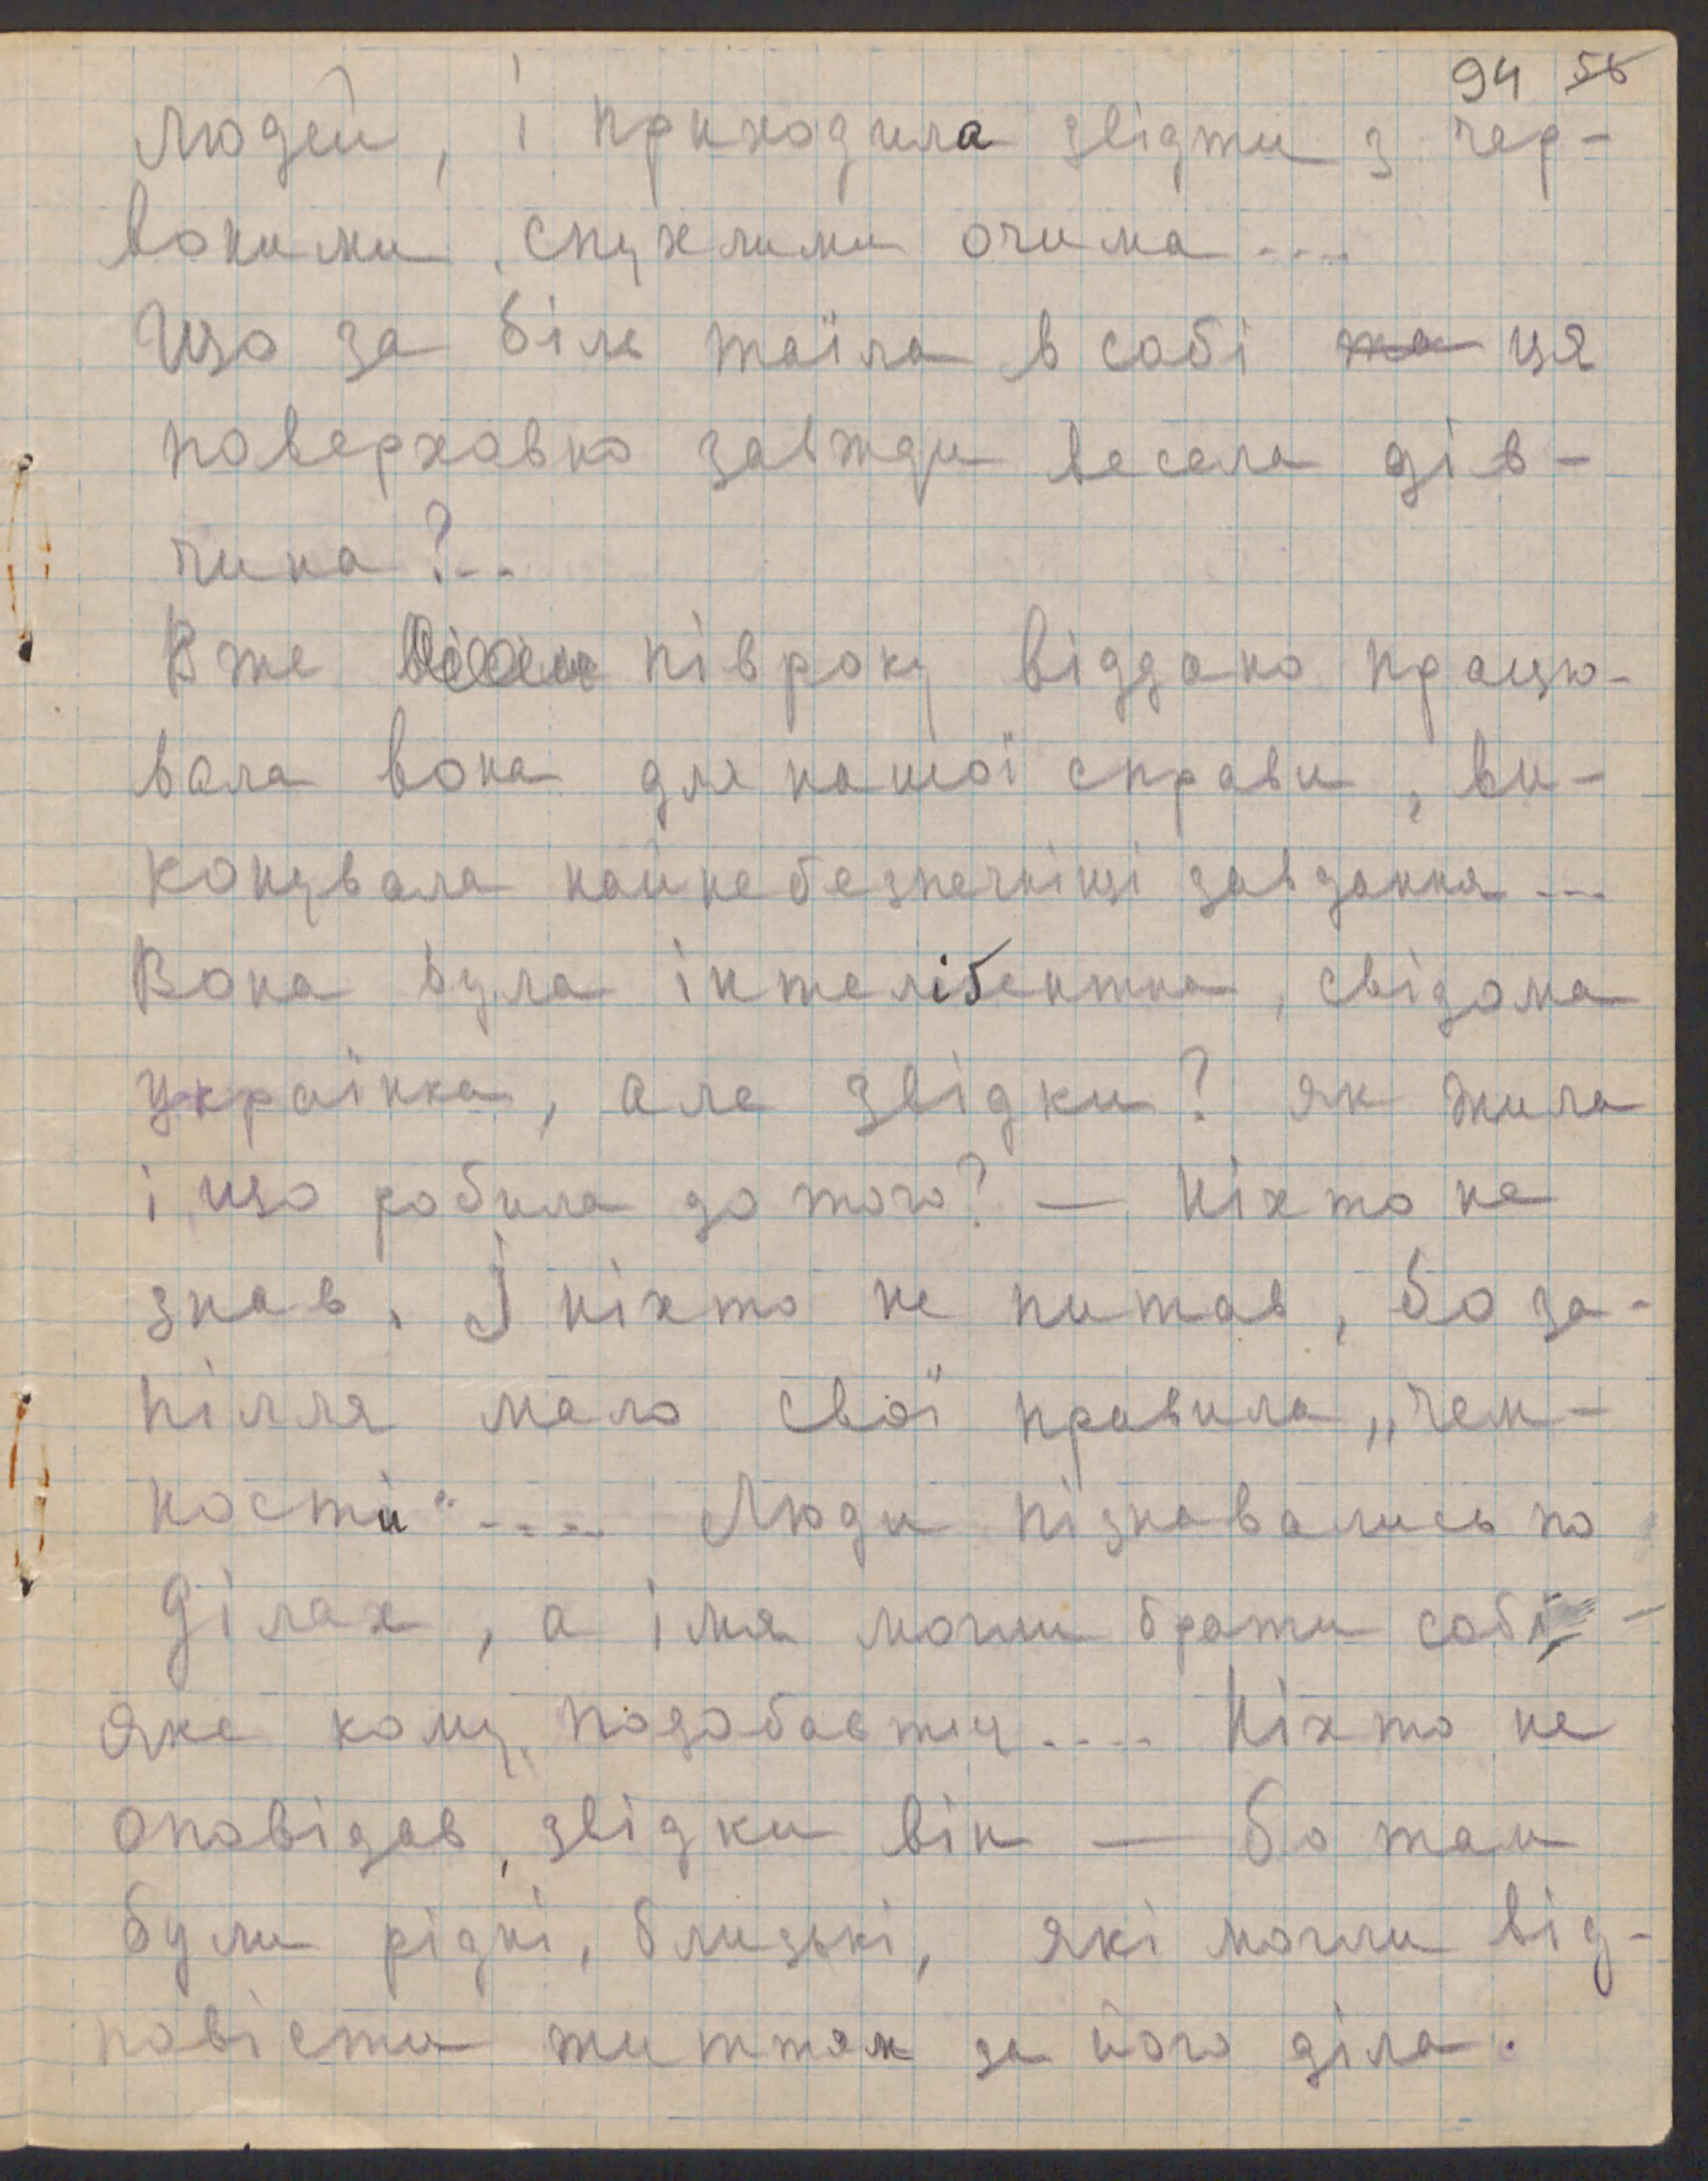 94 58
людей, і приходила звідти з чер-
воними, спухлими очима....
Що за біль таїла в собі та ця
поверховно завжди весела дів-
чина?..
Вже півроку віддано працю-
вала вона для нашої справи, ви-
конувала найнебезпечніщі завдання...
Вона була інтеліґентна, свідома
українка, але звідки? як жила
і що робила до того? — Ніхто не
знав. І ніхто не питав, бо за-
пілля мало свої правила „чем-
ности".... Люди пізнавались по
ділах, а імя могли брати собі -
яке кому подобається.... Ніхто не
оповідав, звідки він — бо там
були рідні, близькі, які могли від-
повісти життям за його діла.